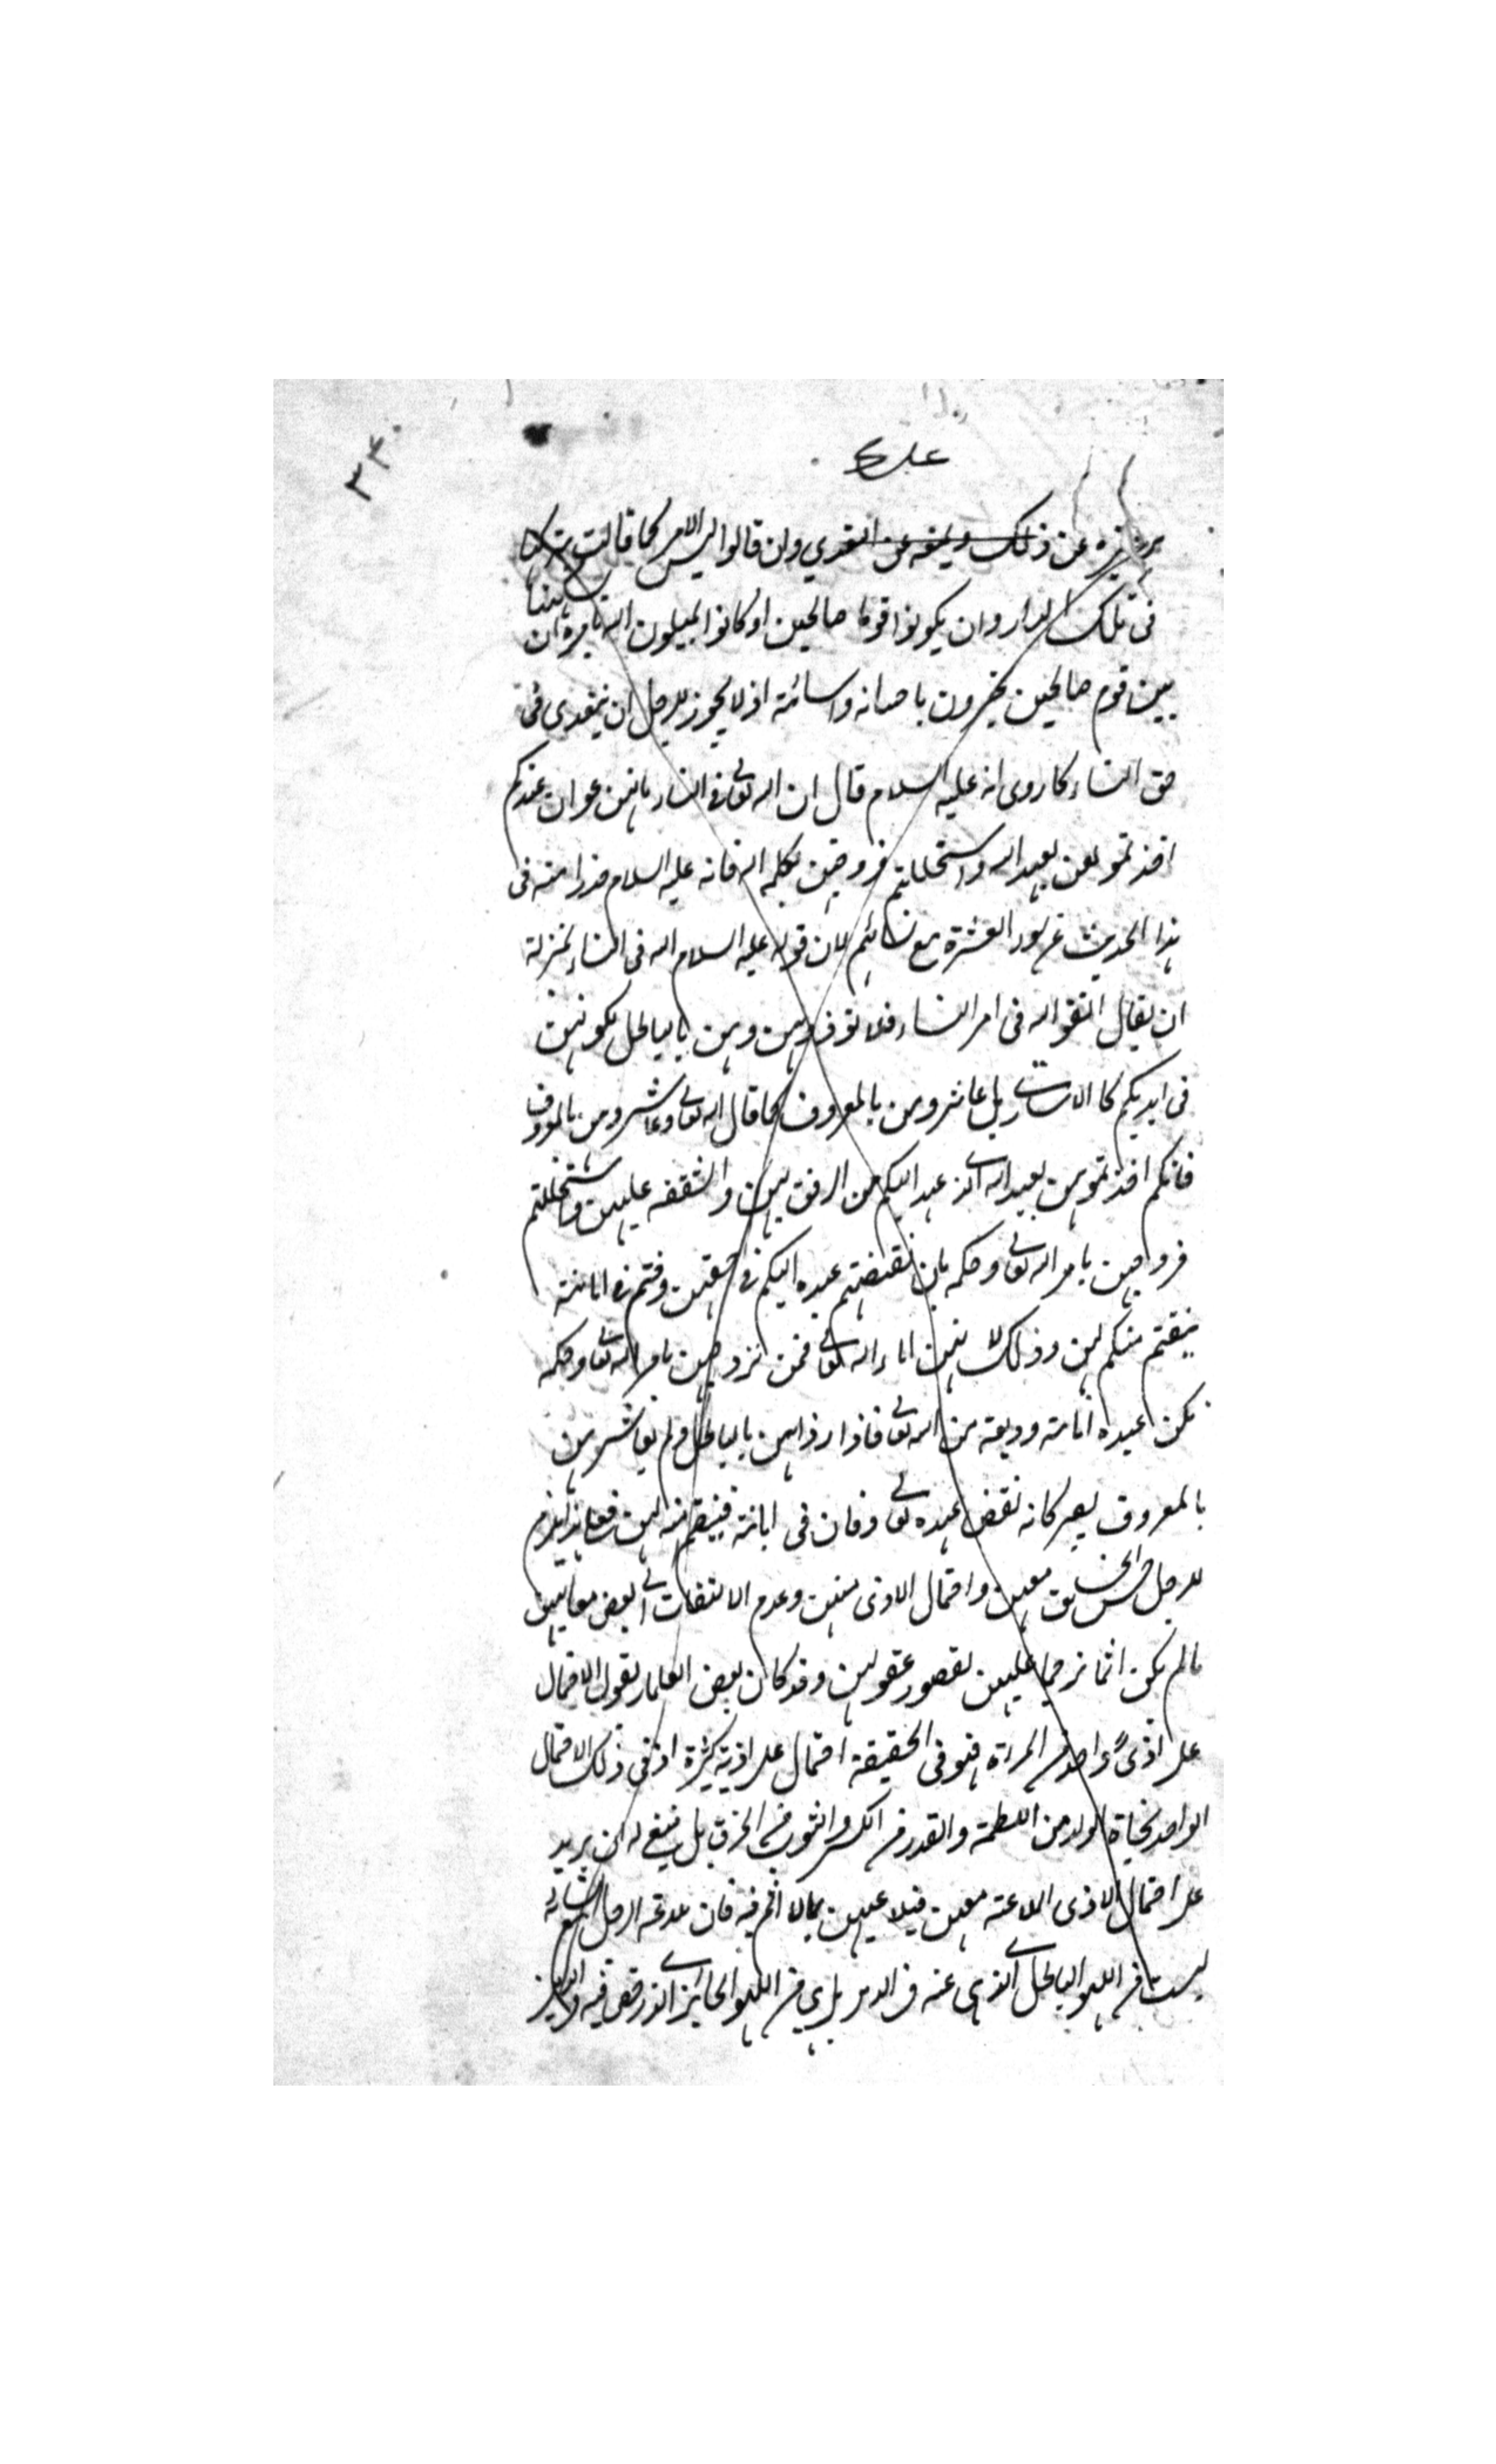 ٣٣٠
عن ذلك ويمنعه عن التعدي وان قالوا ليس الامر كما قالت
في تلك الدار وان يكونوا قوما صالحين او كانوا يميلون اليه يامره ان
بين قوم صالحين يخبرون باحسانه واسائته اذ لا يجوز للرجل ان يتعدى في
حق النساء كما روى انه عليه السلام قال ان الله تعالى في النساء فانهن عوان عندكم
اخذتموهن بعهد الله واستحللتم فروجهن بكلمة الله فانه عليه السلام حذر امته في
هذا الحديث عن سوء العشرة مع نسائهم لان قوله عليه السلام الله في النساء بمنزلة
ان يقال اتقوا الله في امر النساء فلا تؤذوهن وهن بالباطل لكونهن
في ايديكم كالاسارى بل عاشروهن بالمعروف كما قال الله تعالى وعاشروهن بالمعروف
فانكم اخذتموهن بعهد الله الذي عهد اليكم من الرفق بهن والشفقة عليهن واستحللتم
فروجهن بامر الله تعالى وحكمه فان نقضتم عهده اليكم في حقهن وخنتم في امانته
ينتقم منكم لهن وذلك لانهن اماء الله تعالى فمن تزوجهن بامر الله تعالى وحكمه
تكن عنده امانة ووديعة من الله تعالى فاذا اذاهن بالباطل ولم يعاشرهن
بالمعروف يصير كانه نقض عهده تعالى وخان في امانته فينتقم منه لهن فعلى هذا يلزم
للرجل حسن الخلق معهن واحتمال الاذى منهن وعدم الالتفات الى بعض معايبهن
ما لم يكن اثما ترحما عليهن لقصور عقولهن وقد كان بعض العلماء يقول الاحتمال
على اذى واحد من المراة هو في الحقيقة احتمال على اذية كثيرة اذ في ذلك الاحتمال
الواحد نجاة الولد من اللطمة والقدر من الكسر والثوب من الخرق بل ينبغي له ان يزيد
على احتمال الاذى الملاعبة معهن فيلاعبهن بما لا اثم فيه فان ملاعبة الرجل مع نسائه
ليست من اللهو الباطل المنهي عنه في الدين بل هي من اللهو الجائز الذي رخص فيه